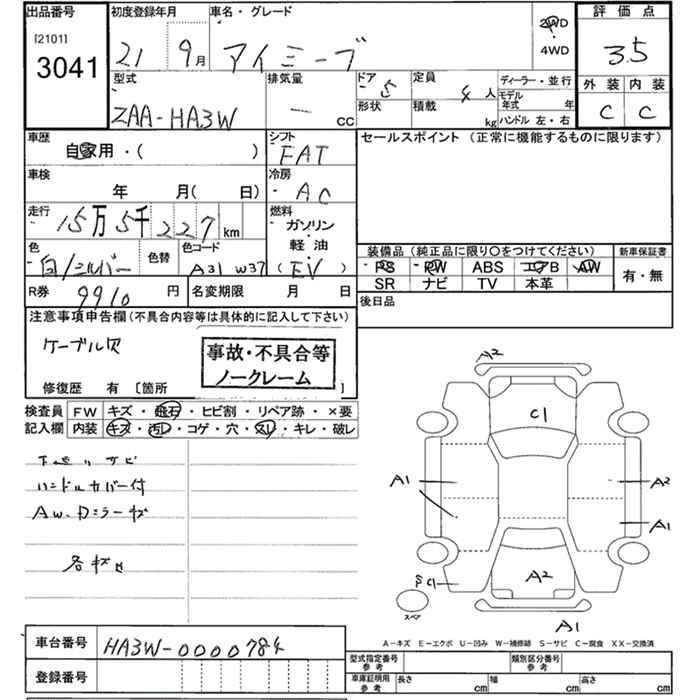 出品番号 初度登録年月 車名・グレード 評価点
[2101] 3041 21 9月 アイミーブ 2WD 4WD 3.5
型式 排気量 ドア 5 定員 4人 ディーラー・並行 外装 内装
ZAA-HA3W - CC 形状 積載 kg モデル年式 年 C C
ハンドル 左・右
車歴 シフト セールスポイント (正常に機能するものに限ります)
自家用・( ) FAT
車検 冷房
年 月( 日) AC
走行 燃料
15万5千227km ガソリン・軽油・(EV)
色 色替 色コード 装備品 (純正品に限り○をつけてください) 新車保証書
白/シルバー A31 W37 PS PW ABS エアB AW 有・無
SR ナビ TV 本革
R券 9910円 名変期限 月 日 後日品
注意事項申告欄(不具合内容等は具体的に記入して下さい)
ケーブル欠
事故・不具合等
ノークレーム
修復歴 有 〔箇所
検査員 FW キズ・飛石・ヒビ割・リペア跡・×要
記入欄 内装 キズ・汚レ・コゲ・穴・スレ・キレ・破レ
サビ
ハンドルカバー付
AW、Dミラーキズ
各キズ凹
A2
C1
A1 A2
A1
C1 A2
スペア
A1
A-キズ E-エクボ U-凹み W-補修跡 S-サビ C-腐食 XX-交換済
車台番号 HA3W-0000784
登録番号
型式指定番号 参考 類別区分番号 参考
車庫証明用 参考 長さ cm 幅 cm 高さ cm